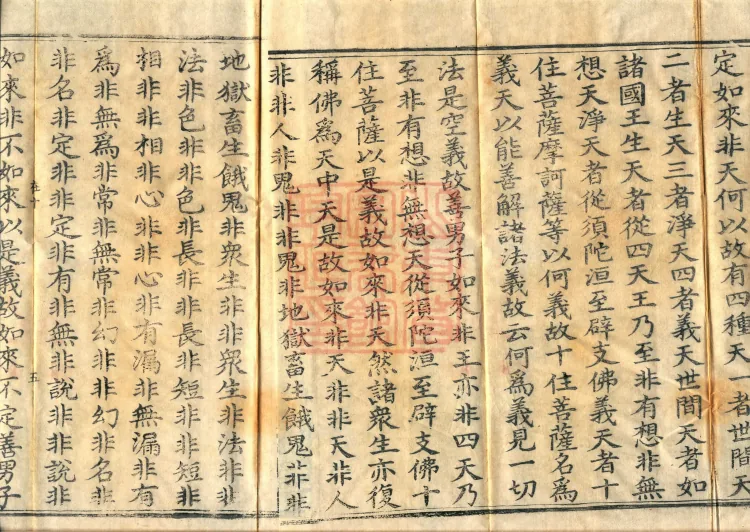 定如來非天何以故有四種天一者世間天
二者生天三者淨天四者義天世間天者如
諸國王生天者從四天王乃至非有想非無
想天淨天者從須陀洹至辟支佛義天者十
住菩薩摩訶薩等以何義故十住菩薩名爲
義天以能善解諸法義故云何爲義見一切
法是空義故善男子如來非王亦非四天乃
至非有想非無想天從須陀洹至辟支佛十
住菩薩以是義故如來非天然諸衆生亦復
稱佛爲天中天是故如來非天非非天非人
非非人非鬼非非鬼非地獄畜生餓鬼非非
地獄畜生餓鬼非衆生非非衆生非法非非
法非色非非色非長非非長非短非非短非
相非非相非心非非心非有漏非無漏非有
爲非無爲非常非無常非幻非非幻非名非
非名非定非非定非有非無非說非非說非
五
如來非不如來以是義故如來不定善男子